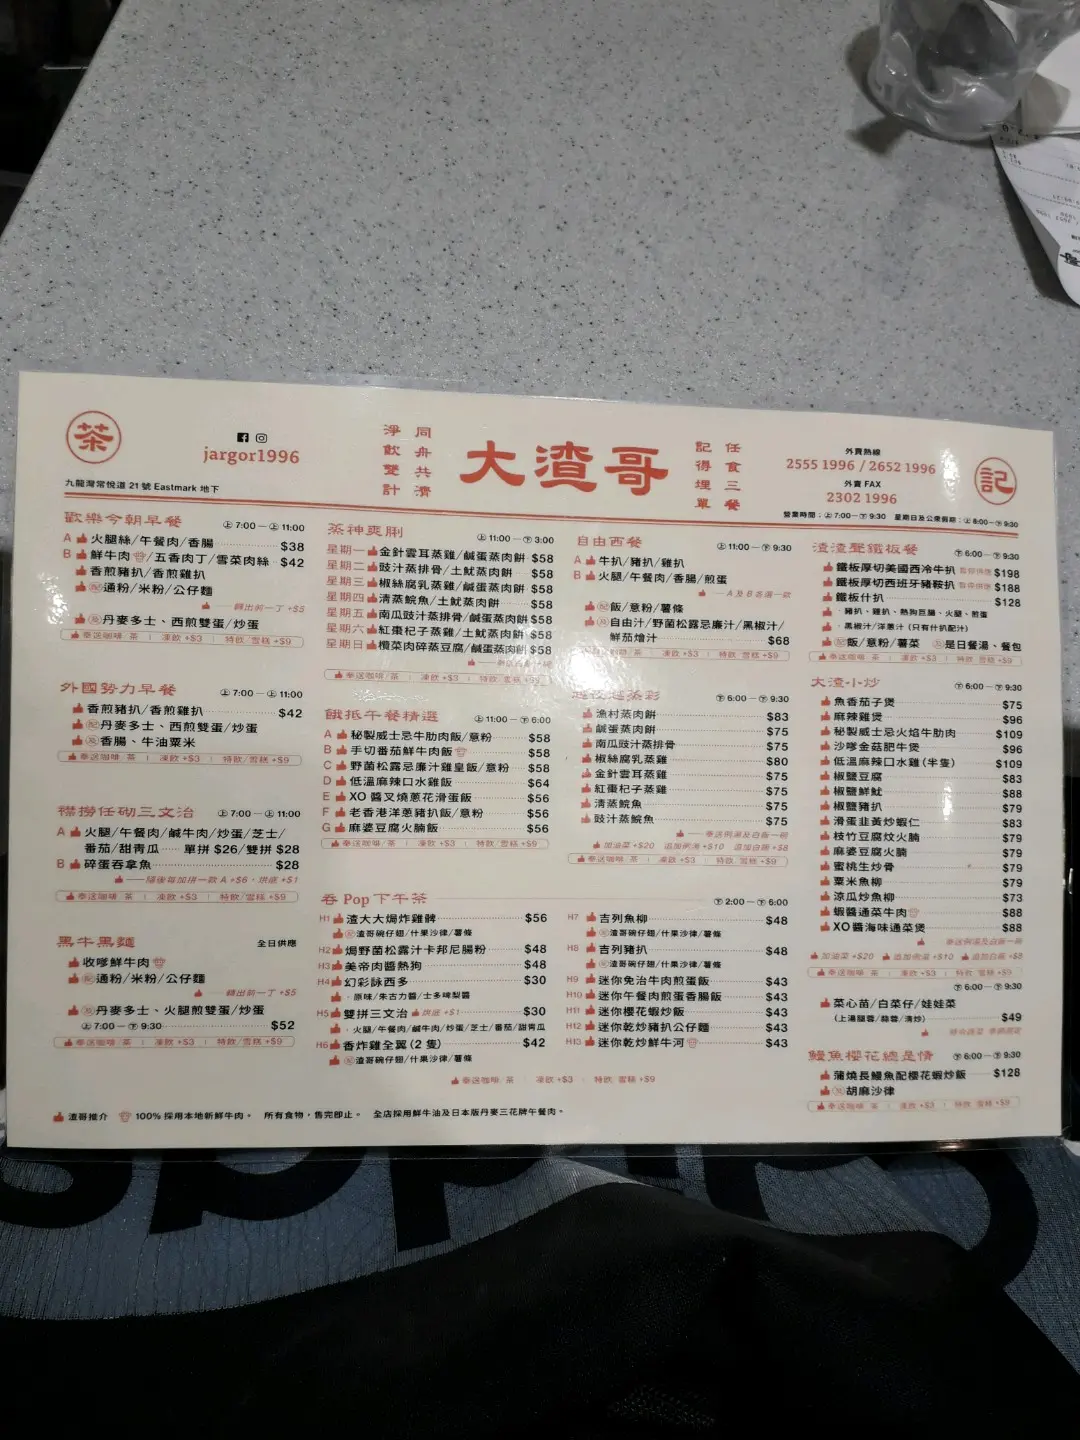 茶
jargor1996
九龍灣常悅道 21 號 Eastmark 地下
淨飲雙計
同舟共濟
大渣哥
記得埋單
任食三餐
外賣熱線
2555 1996 / 2652 1996
外賣 FAX
2302 1996
記
營業時間：上 7:00 — 下 9:30 星期日及公眾假期：上 8:00 — 下 9:30
歡樂今朝早餐 上 7:00 — 上 11:00
A 火腿絲/午餐肉/香腸 $38
B 鮮牛肉/五香肉丁/雪菜肉絲 $42
香煎豬扒/香煎雞扒
配 通粉/米粉/公仔麵
轉出前一丁 +$5
及 丹麥多士、西煎雙蛋/炒蛋
奉送咖啡/茶 | 凍飲 +$3 | 特飲/雪糕 +$9
外國勢力早餐 上 7:00 — 上 11:00
香煎豬扒/香煎雞扒 $42
配 丹麥多士、西煎雙蛋/炒蛋
及 香腸、牛油粟米
奉送咖啡/茶 | 凍飲 +$3 | 特飲/雪糕 +$9
襟撈任砌三文治 上 7:00 — 上 11:00
A 火腿/午餐肉/鹹牛肉/炒蛋/芝士/
番茄/甜青瓜 單拼 $26/雙拼 $28
B 碎蛋吞拿魚 $28
隨後每加拼一款 A +$6，烘底 +$1
奉送咖啡/茶 | 凍飲 +$3 | 特飲/雪糕 +$9
黑牛黑麵 全日供應
收嗲鮮牛肉
配 通粉/米粉/公仔麵
轉出前一丁 +$5
及 丹麥多士、火腿煎雙蛋/炒蛋
上 7:00 — 下 9:30 $52
奉送咖啡/茶 | 凍飲 +$3 | 特飲/雪糕 +$9
蒸神爽脷 上 11:00 — 下 3:00
星期一 金針雲耳蒸雞/鹹蛋蒸肉餅 $58
星期二 豉汁蒸排骨/土魷蒸肉餅 $58
星期三 椒絲腐乳蒸雞/鹹蛋蒸肉餅 $58
星期四 清蒸鯇魚/土魷蒸肉餅 $58
星期五 南瓜豉汁蒸排骨/鹹蛋蒸肉餅 $58
星期六 紅棗杞子蒸雞/土魷蒸肉餅 $58
星期日 欖菜肉碎蒸豆腐/鹹蛋蒸肉餅 $58
奉送咖啡/茶 | 凍飲 +$3 | 特飲/雪糕
餓抵午餐精選 上 11:00 — 下 6:00
A 秘製威士忌牛肋肉飯/意粉 $58
B 手切番茄鮮牛肉飯 $58
C 野菌松露忌廉汁雞皇飯/意粉 $58
D 低溫麻辣口水雞飯 $64
E XO 醬叉燒蔥花滑蛋飯 $56
F 老香港洋蔥豬扒飯/意粉 $56
G 麻婆豆腐火腩飯 $56
奉送咖啡/茶 | 凍飲 +$3 | 特飲/雪糕 +$9
自由西餐 上 11:00 — 下 9:30
A 牛扒/豬扒/雞扒
B 火腿/午餐肉/香腸/煎蛋
A 及 B 各選一款
配 飯/意粉/薯條
及 自由汁/野菌松露忌廉汁/黑椒汁/
鮮茄燴汁 $68
奉送咖啡/茶 | 凍飲 +$3 | 特飲/雪糕 +$9
下 6:00 — 下 9:30
漁村蒸肉餅 $83
鹹蛋蒸肉餅 $75
南瓜豉汁蒸排骨 $75
椒絲腐乳蒸雞 $80
金針雲耳蒸雞 $75
紅棗杞子蒸雞 $75
清蒸鯇魚 $75
豉汁蒸鯇魚 $75
奉送例湯及白飯一碗
加油菜 +$20 追加例湯 +$10 追加白飯 +$8
奉送咖啡/茶 | 凍飲 +$3 | 特飲/雪糕 +$9
吞 Pop 下午茶 下 2:00 — 下 6:00
H1 渣大大焗炸雞髀 $56
配 渣哥碗仔翅/什果沙律/薯條
H2 焗野菌松露汁卡邦尼腸粉 $48
H3 美帝肉醬熱狗 $48
H4 幻彩詠西多 $30
· 原味/朱古力醬/士多啤梨醬
H5 雙拼三文治 烘底 +$1 $30
· 火腿/午餐肉/鹹牛肉/炒蛋/芝士/番茄/甜青瓜
H6 香炸雞全翼 (2 隻) $42
配 渣哥碗仔翅/什果沙律/薯條
H7 吉列魚柳 $48
配 渣哥碗仔翅/什果沙律/薯條
H8 吉列豬扒 $48
配 渣哥碗仔翅/什果沙律/薯條
H9 迷你免治牛肉煎蛋飯 $43
H10 迷你午餐肉煎蛋香腸飯 $43
H11 迷你櫻花蝦炒飯 $43
H12 迷你乾炒豬扒公仔麵 $43
H13 迷你乾炒鮮牛河 $43
奉送咖啡/茶 | 凍飲 +$3 | 特飲/雪糕 +$9
渣渣聲鐵板餐 下 6:00 — 下 9:30
鐵板厚切美國西冷牛扒 $198
鐵板厚切西班牙豬鞍扒 $188
鐵板什扒 $128
· 豬扒、雞扒、熱狗豆腸、火腿、煎蛋
· 黑椒汁/洋蔥汁 (只有什扒配汁)
配 飯/意粉/薯菜 及 是日餐湯、餐包
奉送咖啡/茶 | 凍飲 +$3 | 特飲/雪糕 +$9
大渣小炒 下 6:00 — 下 9:30
魚香茄子煲 $75
麻辣雞煲 $96
秘製威士忌火焰牛肋肉 $109
沙嗲金菇肥牛煲 $96
低溫麻辣口水雞 (半隻) $109
椒鹽豆腐 $83
椒鹽鮮魷 $88
椒鹽豬扒 $79
滑蛋韭黃炒蝦仁 $83
枝竹豆腐炆火腩 $79
麻婆豆腐火腩 $79
蜜桃生炒骨 $79
粟米魚柳 $79
涼瓜炒魚柳 $73
蝦醬通菜牛肉 $88
XO 醬海味通菜煲 $88
奉送例湯及白飯一碗
加油菜 +$20 追加例湯 +$10 追加白飯 +$8
奉送咖啡/茶 | 凍飲 +$3 | 特飲/雪糕 +$9
下 6:00 — 下 9:30
菜心苗/白菜仔/娃娃菜
(上湯腿蓉/蒜蓉/清炒) $49
鰻魚櫻花總是情 下 6:00 — 下 9:30
蒲燒長鰻魚配櫻花蝦炒飯 $128
及 胡麻沙律
奉送咖啡/茶 | 凍飲 +$3 | 特飲/雪糕 +$9
渣哥推介 100% 採用本地新鮮牛肉。 所有食物，售完即止。 全店採用鮮牛油及日本版丹麥三花牌午餐肉。